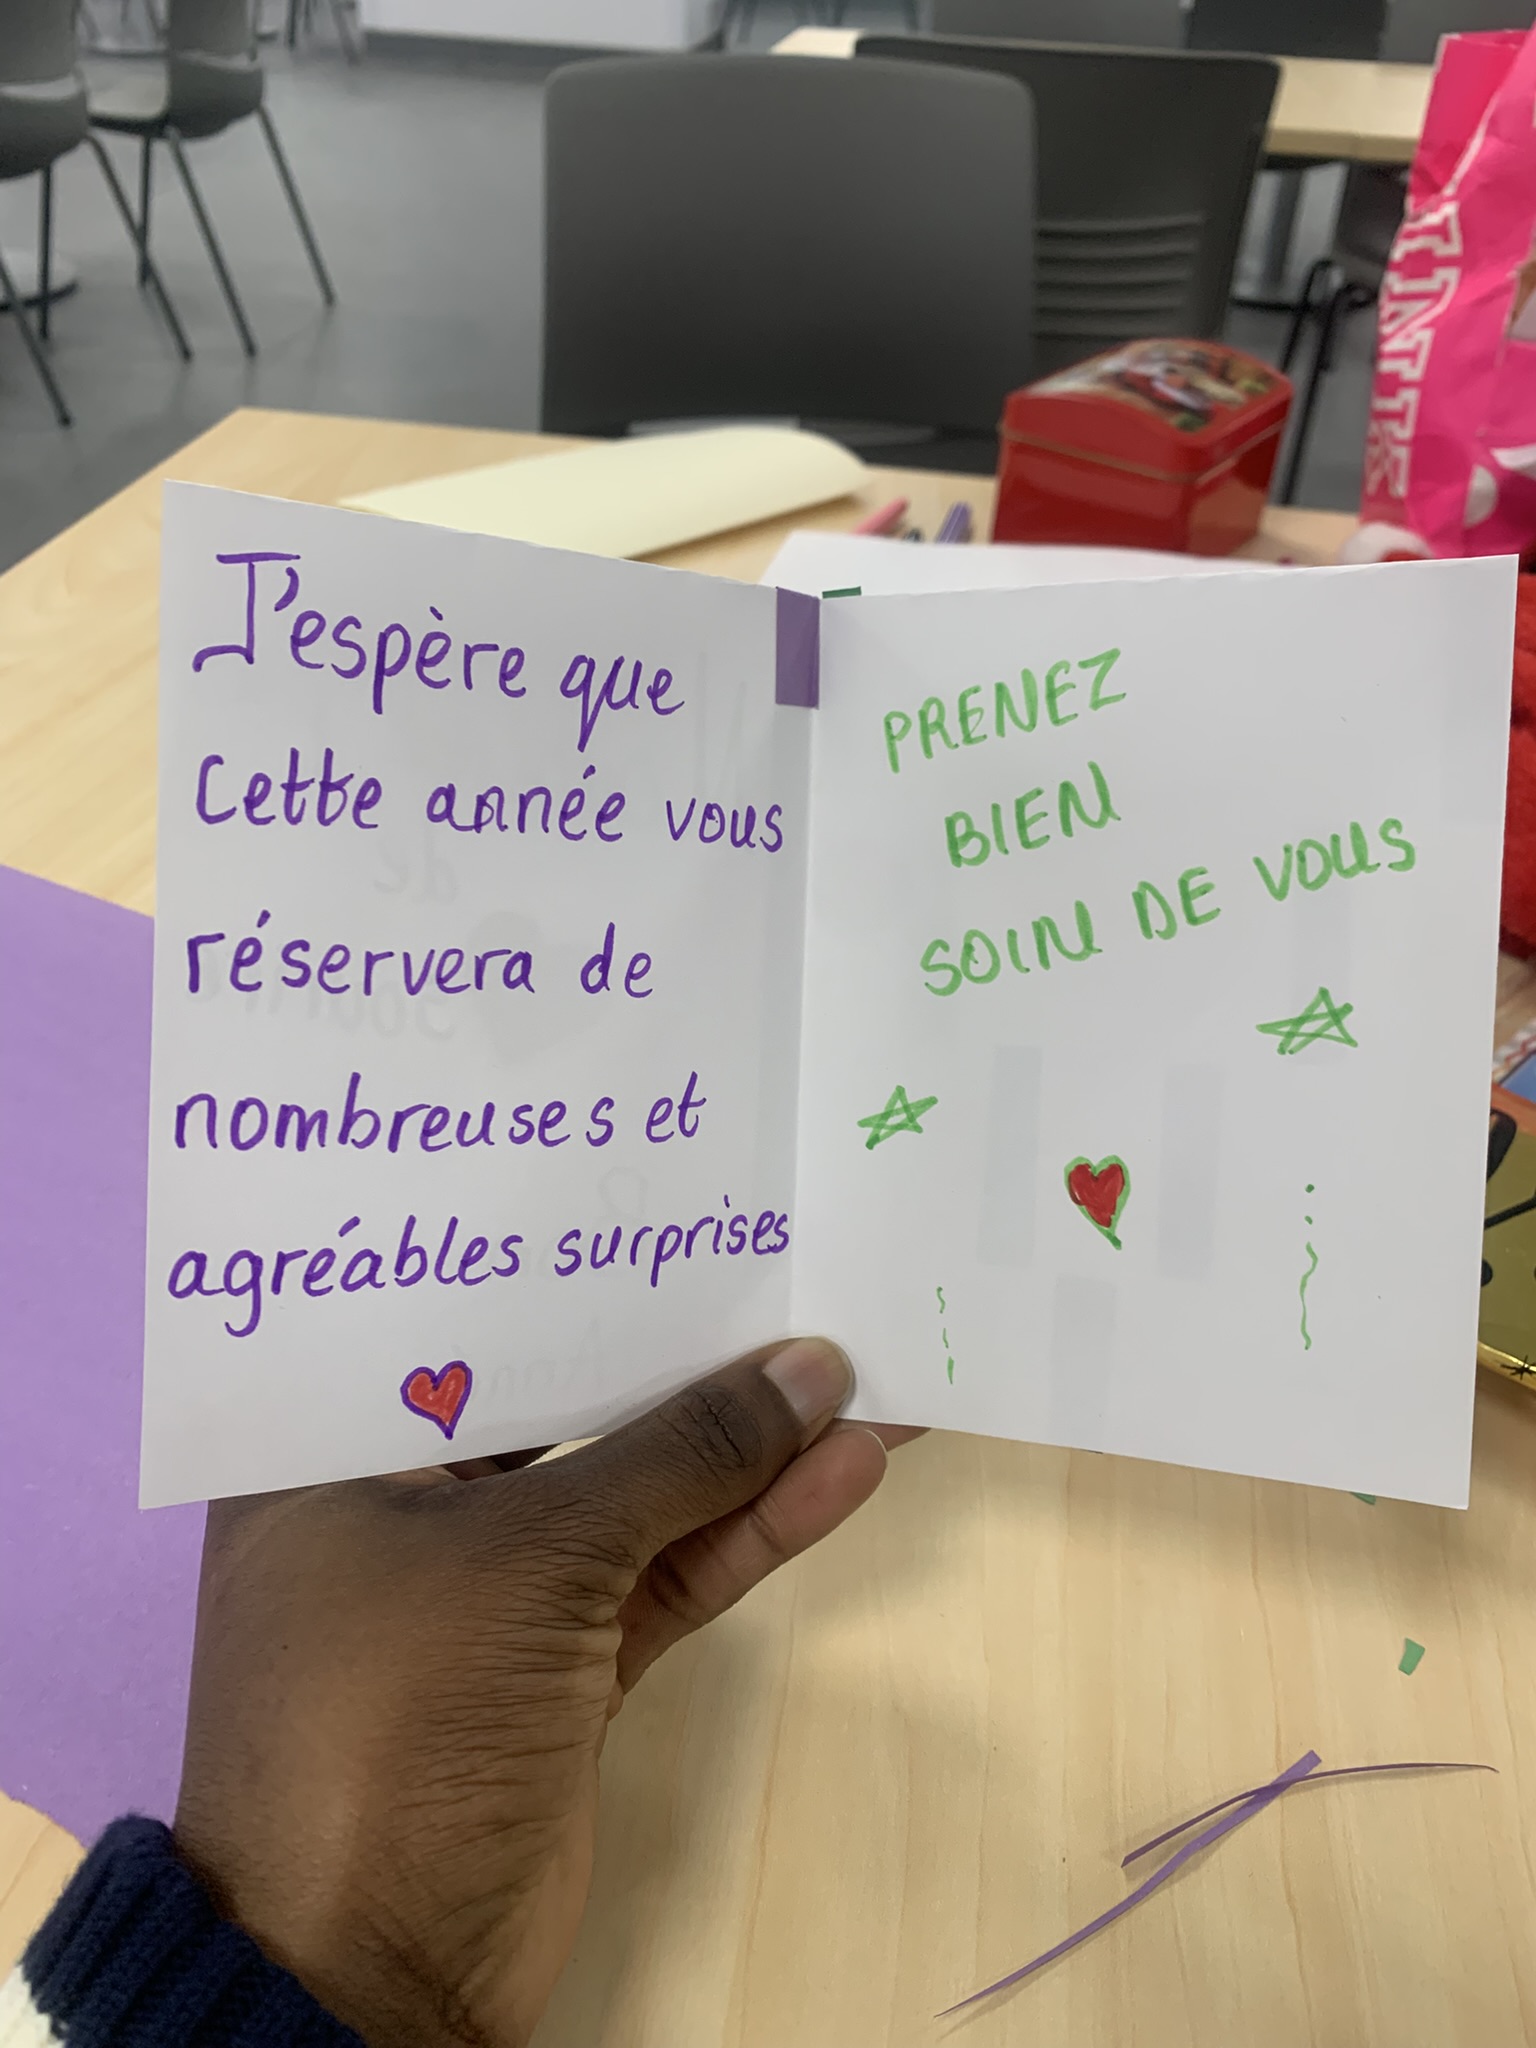 J'espère que
cette année vous
réservera de
nombreuses et
agréables surprises
PRENEZ
BIEN
SOIN DE VOUS